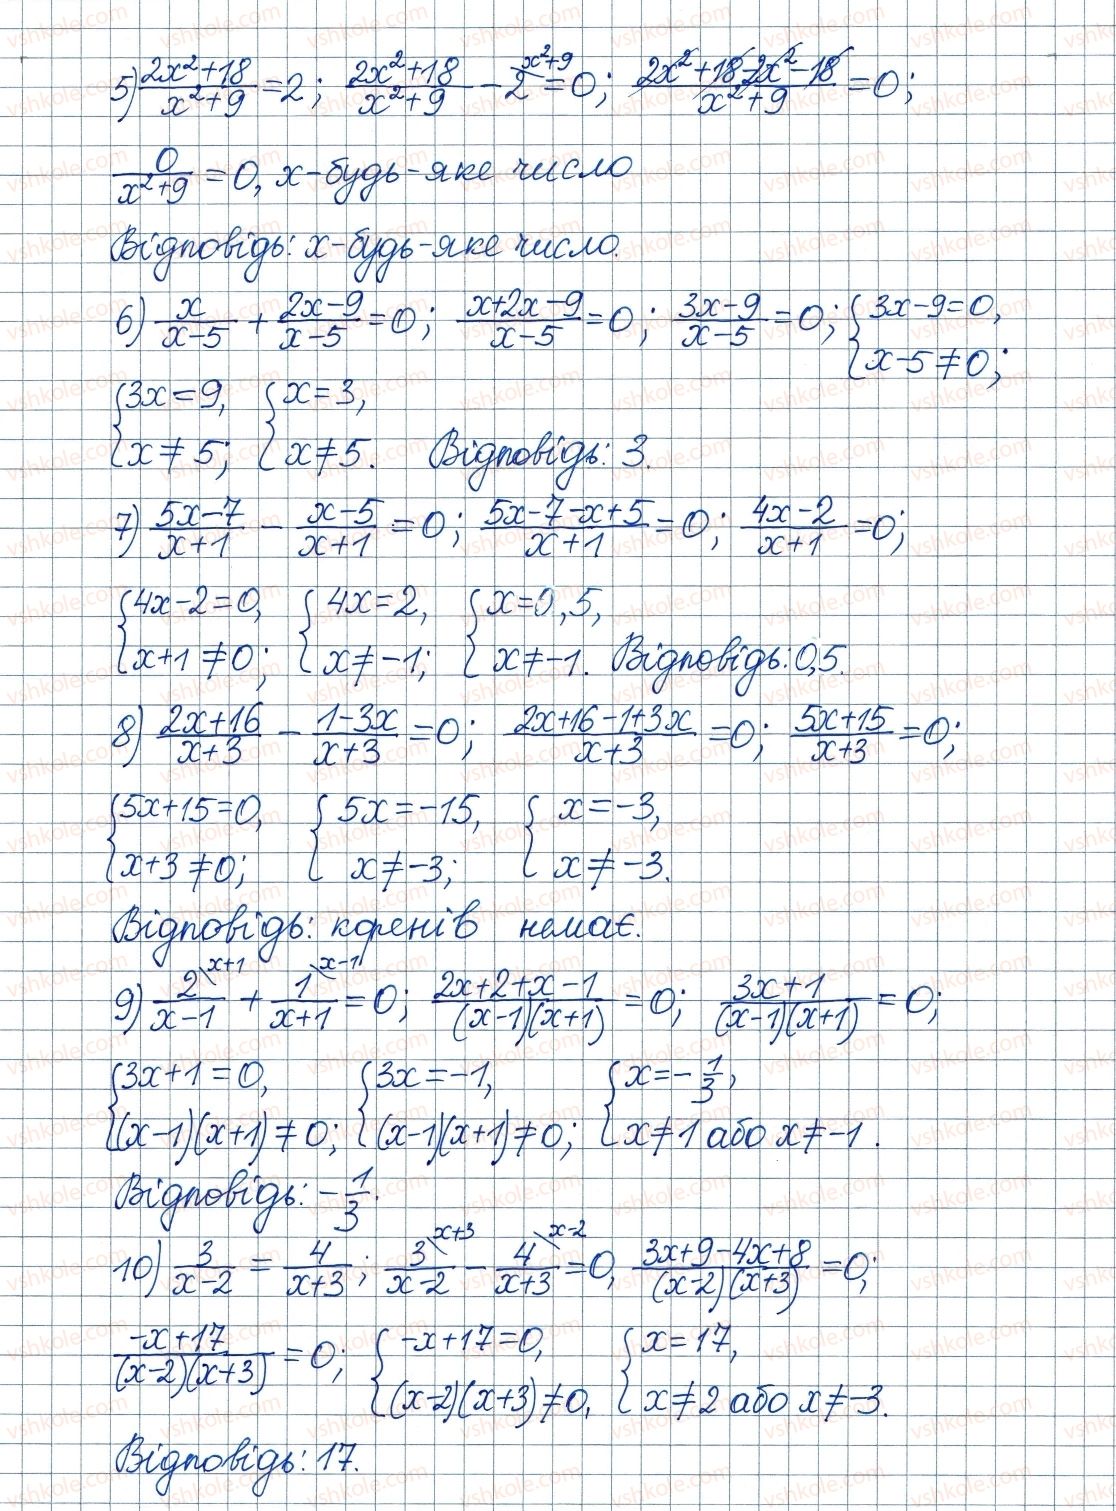 5) (2x²+18)/(x²+9) = 2; (2x²+18)/(x²+9) − 2^(x²+9) = 0; (2x²+18−2x²−18)/(x²+9) = 0;
0/(x²+9) = 0, x-будь-яке число
Відповідь: x-будь-яке число.
6) x/(x−5) + (2x−9)/(x−5) = 0; (x+2x−9)/(x−5) = 0; (3x−9)/(x−5) = 0; {3x−9=0, x−5≠0;
{3x=9, x≠5; {x=3, x≠5. Відповідь: 3.
7) (5x−7)/(x+1) − (x−5)/(x+1) = 0; (5x−7−x+5)/(x+1) = 0; (4x−2)/(x+1) = 0;
{4x−2=0, x+1≠0; {4x=2, x≠−1; {x=0,5, x≠−1. Відповідь: 0,5.
8) (2x+16)/(x+3) − (1−3x)/(x+3) = 0; (2x+16−1+3x)/(x+3) = 0; (5x+15)/(x+3) = 0;
{5x+15=0, x+3≠0; {5x=−15, x≠−3; {x=−3, x≠−3.
Відповідь: коренів немає.
9) 2^(x+1)/(x−1) + 1^(x−1)/(x+1) = 0; (2x+2+x−1)/((x−1)(x+1)) = 0; (3x+1)/((x−1)(x+1)) = 0;
{3x+1=0, (x−1)(x+1)≠0; {3x=−1, (x−1)(x+1)≠0; {x=−1/3, x≠1 або x≠−1.
Відповідь: −1/3.
10) 3/(x−2) = 4/(x+3); 3^(x+3)/(x−2) − 4^(x−2)/(x+3) = 0, (3x+9−4x+8)/((x−2)(x+3)) = 0;
(−x+17)/((x−2)(x+3)) = 0; {−x+17=0, (x−2)(x+3)≠0, {x=17, x≠2 або x≠−3.
Відповідь: 17.
vshkole.com